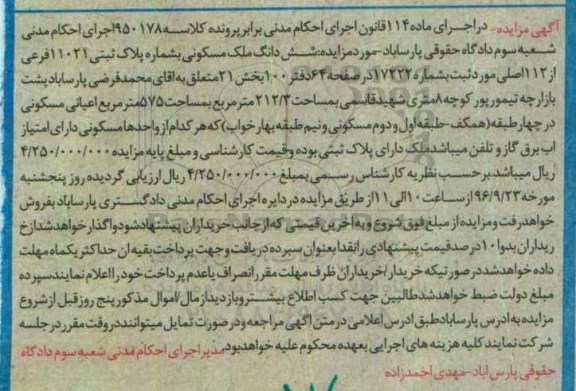 آگهی مزایده- در اجرای ماده ۱۱۴قانون اجرای احکام مدنی برابر پرونده کلاسه ۹۵۰۱۷۸اجرای احکام مدنی
شعبه سوم دادگاه حقوقی پارساباد-مورد مزایده:شش دانگ ملک مسکونی بشماره پلاک ثبتی ۱۱۰۲۱فرعی
از ۱۱۲اصلی مورد ثبت بشماره ۱۷۲۲۲در صفحه ۶۴دفتر ۱۰۰بخش ۲۱متعلق به اقای محمد فرضی پارساباد پشت
بازارچه تیمورپور کوچه ۸متری شهید قاسمی بمساحت ۲۱۲/۳متر مربع بمساحت ۵۷۵متر مربع اعیانی مسکونی
در چهار طبقه(همکف-طبقه اول و دوم مسکونی و نیم طبقه بهار خواب)که هر کدام از واحدها مسکونی دارای امتیاز
اب برق گاز و تلفن میباشد ملک دارای پلاک ثبتی بوده وقیمت کارشناسی و مبلغ پایه مزایده ۴/۲۵۰/۰۰۰/۰۰۰
ریال میباشد.بر حسب نظریه کارشناس رسمی بمبلغ ۴/۲۵۰/۰۰۰/۰۰۰ ریال ارزیابی گردیده روز پنجشنبه
مورخه ۹۶/۹/۲۳از ساعت ۱۰الی ۱۱از طریق مزایده در دایره اجرای احکام مدنی دادگستری پارساباد بفروش
خواهد رفت ومزایده از مبلغ فوق شروع و به اخرین قیمتی که از جانب خریداران پیشنهاد شود واگذار خواهد شد.خ
ریداران بدوا ۱۰درصد قیمت پیشنهادی را نقدا بعنوان سپرده دریافت وجهت پرداخت بقیه ان حداکثر یکماه مهلت
داده خواهد شد در صورتیکه خریدار/خریداران ظرف مهلت مقرر انصراف یا عدم پرداخت خود را اعلام نمایند سپرده
مبلغ دولت ضبط خواهد شد طالبین جهت کسب اطلاع بیشتر و بازدید از مال/اموال مذکور پنج روز قبل از شروع
مزایده به ادرس پارساباد طبق ادرس اعلامی در متن اگهی مراجعه و در صورت تمایل میتوانند در وقت مقرر در جلسه
شرکت نمایند کلیه هزینه های اجرایی بعهده محکوم علیه خواهد بود مدیر اجرای احکام مدنی شعبه سوم دادگاه
حقوقی پارس اباد-مهدی احمدزاده